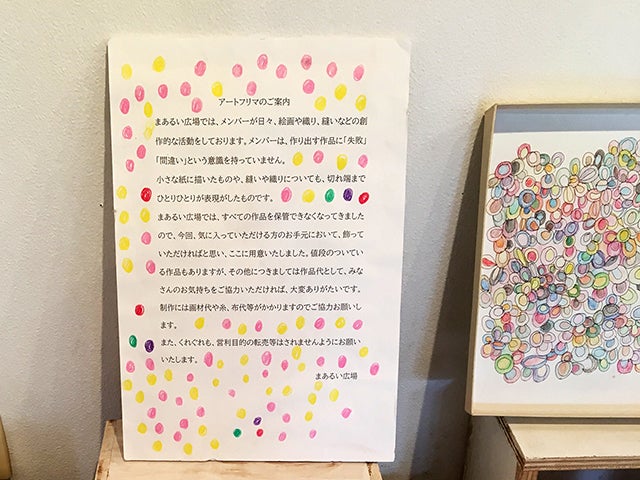 アートフリマのご案内
まあるい広場では、メンバーが日々、絵画や織り、縫いなどの創
作的な活動をしております。メンバーは、作り出す作品に「失敗」
「間違い」という意識を持っていません。
小さな紙に描いたものや、縫いや織りについても、切れ端まで
ひとりひとりが表現がしたものです。
まあるい広場では、すべての作品を保管できなくなってきました
ので、今回、気に入っていただける方のお手元において、飾って
いただければと思い、ここに用意いたしました。値段のついてい
る作品もありますが、その他につきましては作品代として、みな
さんのお気持ちをご協力いただければ、大変ありがたいです。
制作には画材代や糸、布代等がかかりますのでご協力お願いし
ます。
また、くれぐれも、営利目的の転売等はされませんようにお願い
いたします。
まあるい広場